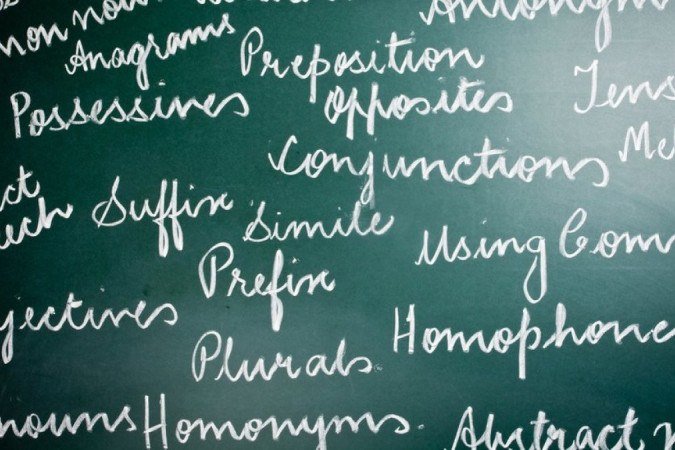 mon nou
Antonym
Anagrams
Preposition
Possessives
Opposites
Tens
Conjunctions
Me
ct
eech
Suffix
Simile
Using Com
Prefix
jectives
Homophone
Plurals
nouns
Homonyms
Abstract n